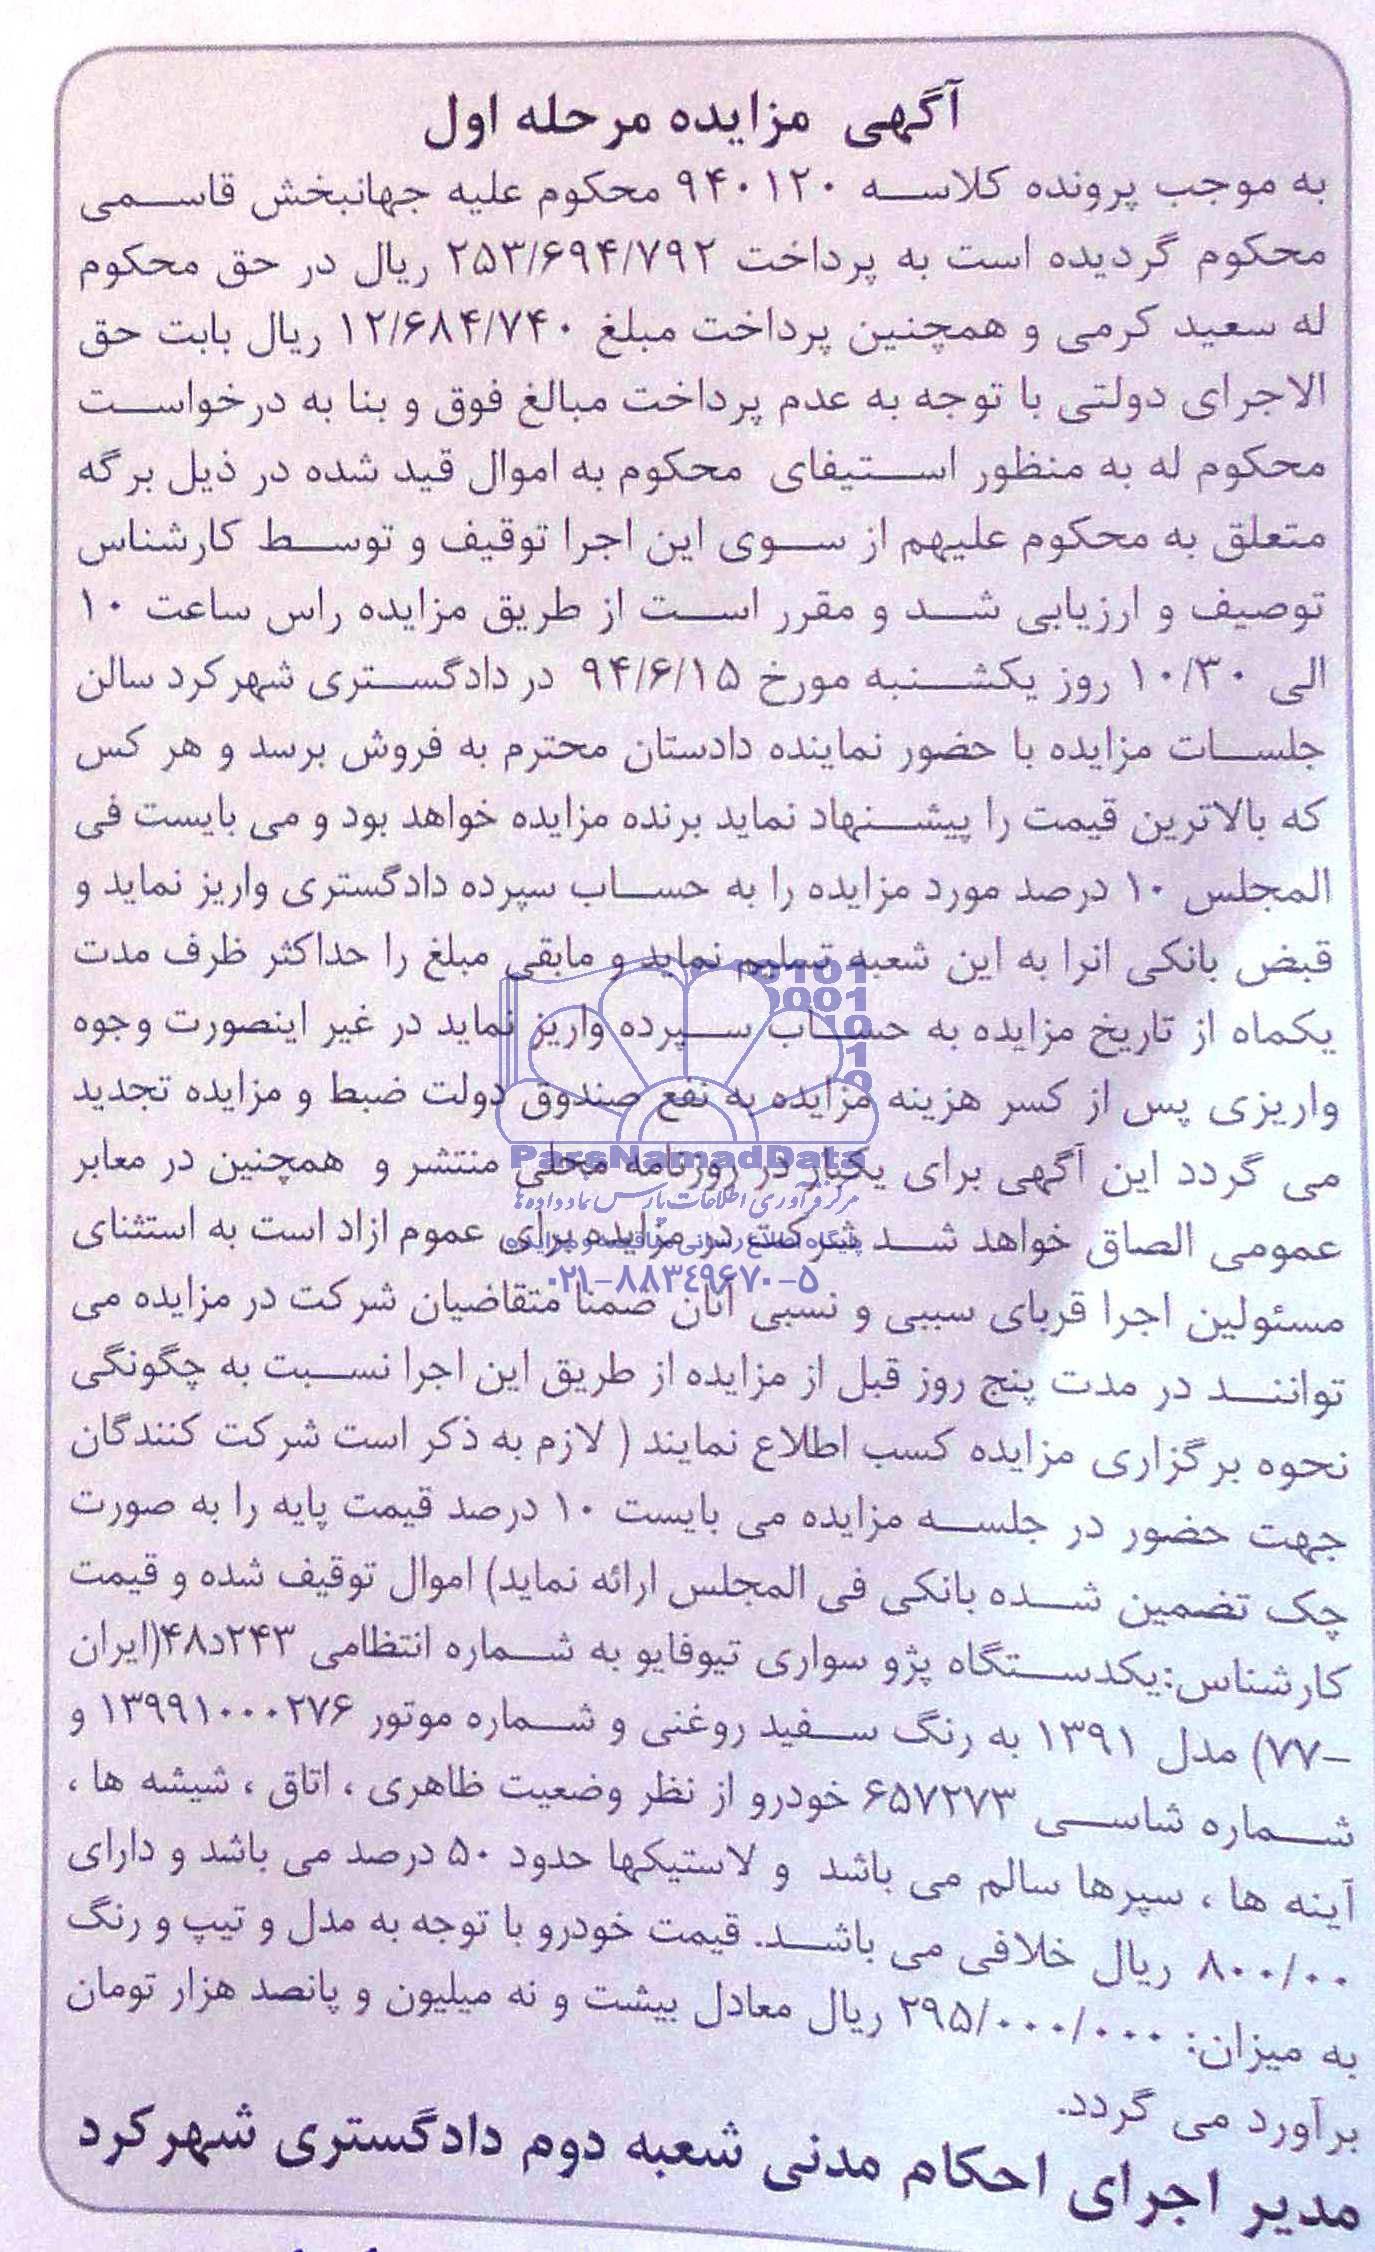 آگهی مزایده مرحله اول
به موجب پرونده کلاسه ۹۴۰۱۲۰ محکوم علیه جهانبخش قاسمی
محکوم گردیده است به پرداخت ۲۵۳/۶۹۴/۷۹۲ ریال در حق محکوم
له سعید کرمی و همچنین پرداخت مبلغ ۱۲/۶۸۴/۷۴۰ ریال بابت حق
الاجرای دولتی با توجه به عدم پرداخت مبالغ فوق و بنا به درخواست
محکوم له به منظور استیفای محکوم به اموال قید شده در ذیل برگه
متعلق به محکوم علیهم از سوی این اجرا توقیف و توسط کارشناس
توصیف و ارزیابی شد و مقرر است از طریق مزایده راس ساعت ۱۰
الی ۱۰/۳۰ روز یکشنبه مورخ ۹۴/۶/۱۵ در دادگستری شهرکرد سالن
جلسات مزایده با حضور نماینده دادستان محترم به فروش برسد و هر کس
که بالاترین قیمت را پیشنهاد نماید برنده مزایده خواهد بود و می بایست فی
المجلس ۱۰ درصد مورد مزایده را به حساب سپرده دادگستری واریز نماید و
قبض بانکی انرا به این شعبه تسلیم نماید و مابقی مبلغ را حداکثر ظرف مدت
یکماه از تاریخ مزایده به حساب سپرده واریز نماید در غیر اینصورت وجوه
واریزی پس از کسر هزینه مزایده به نفع صندوق دولت ضبط و مزایده تجدید
می گردد این آگهی برای یکبار در روزنامه محلی منتشر و همچنین در معابر
عمومی الصاق خواهد شد شرکت در مزایده برای عموم ازاد است به استثنای
مسئولین اجرا قربای سببی و نسبی آنان ضمنا متقاضیان شرکت در مزایده می
توانند در مدت پنج روز قبل از مزایده از طریق این اجرا نسبت به چگونگی
نحوه برگزاری مزایده کسب اطلاع نمایند ( لازم به ذکر است شرکت کنندگان
جهت حضور در جلسه مزایده می بایست ۱۰ درصد قیمت پایه را به صورت
چک تضمین شده بانکی فی المجلس ارائه نماید) اموال توقیف شده و قیمت
کارشناس:یکدستگاه پژو سواری تیوفایو به شماره انتظامی ۲۴۳د۴۸(ایران
-۷۷) مدل ۱۳۹۱ به رنگ سفید روغنی و شماره موتور ۱۳۹۹۱۰۰۰۲۷۶ و
شماره شاسی ۶۵۷۲۷۳ خودرو از نظر وضعیت ظاهری ، اتاق ، شیشه ها ،
آینه ها ، سپرها سالم می باشد و لاستیکها حدود ۵۰ درصد می باشد و دارای
۸۰۰/۰۰ ریال خلافی می باشد. قیمت خودرو با توجه به مدل و تیپ و رنگ
به میزان: ۲۹۵/۰۰۰/۰۰۰ ریال معادل بیشت و نه میلیون و پانصد هزار تومان
برآورد می گردد.
مدیر اجرای احکام مدنی شعبه دوم دادگستری شهرکرد
ParsNamadData
مرکز فرآوری اطلاعات پارس نماد داده ها
پایگاه اطلاع رسانی مناقصه و مزایده
۰۲۱-۸۸۳۴۹۶۷۰-۵